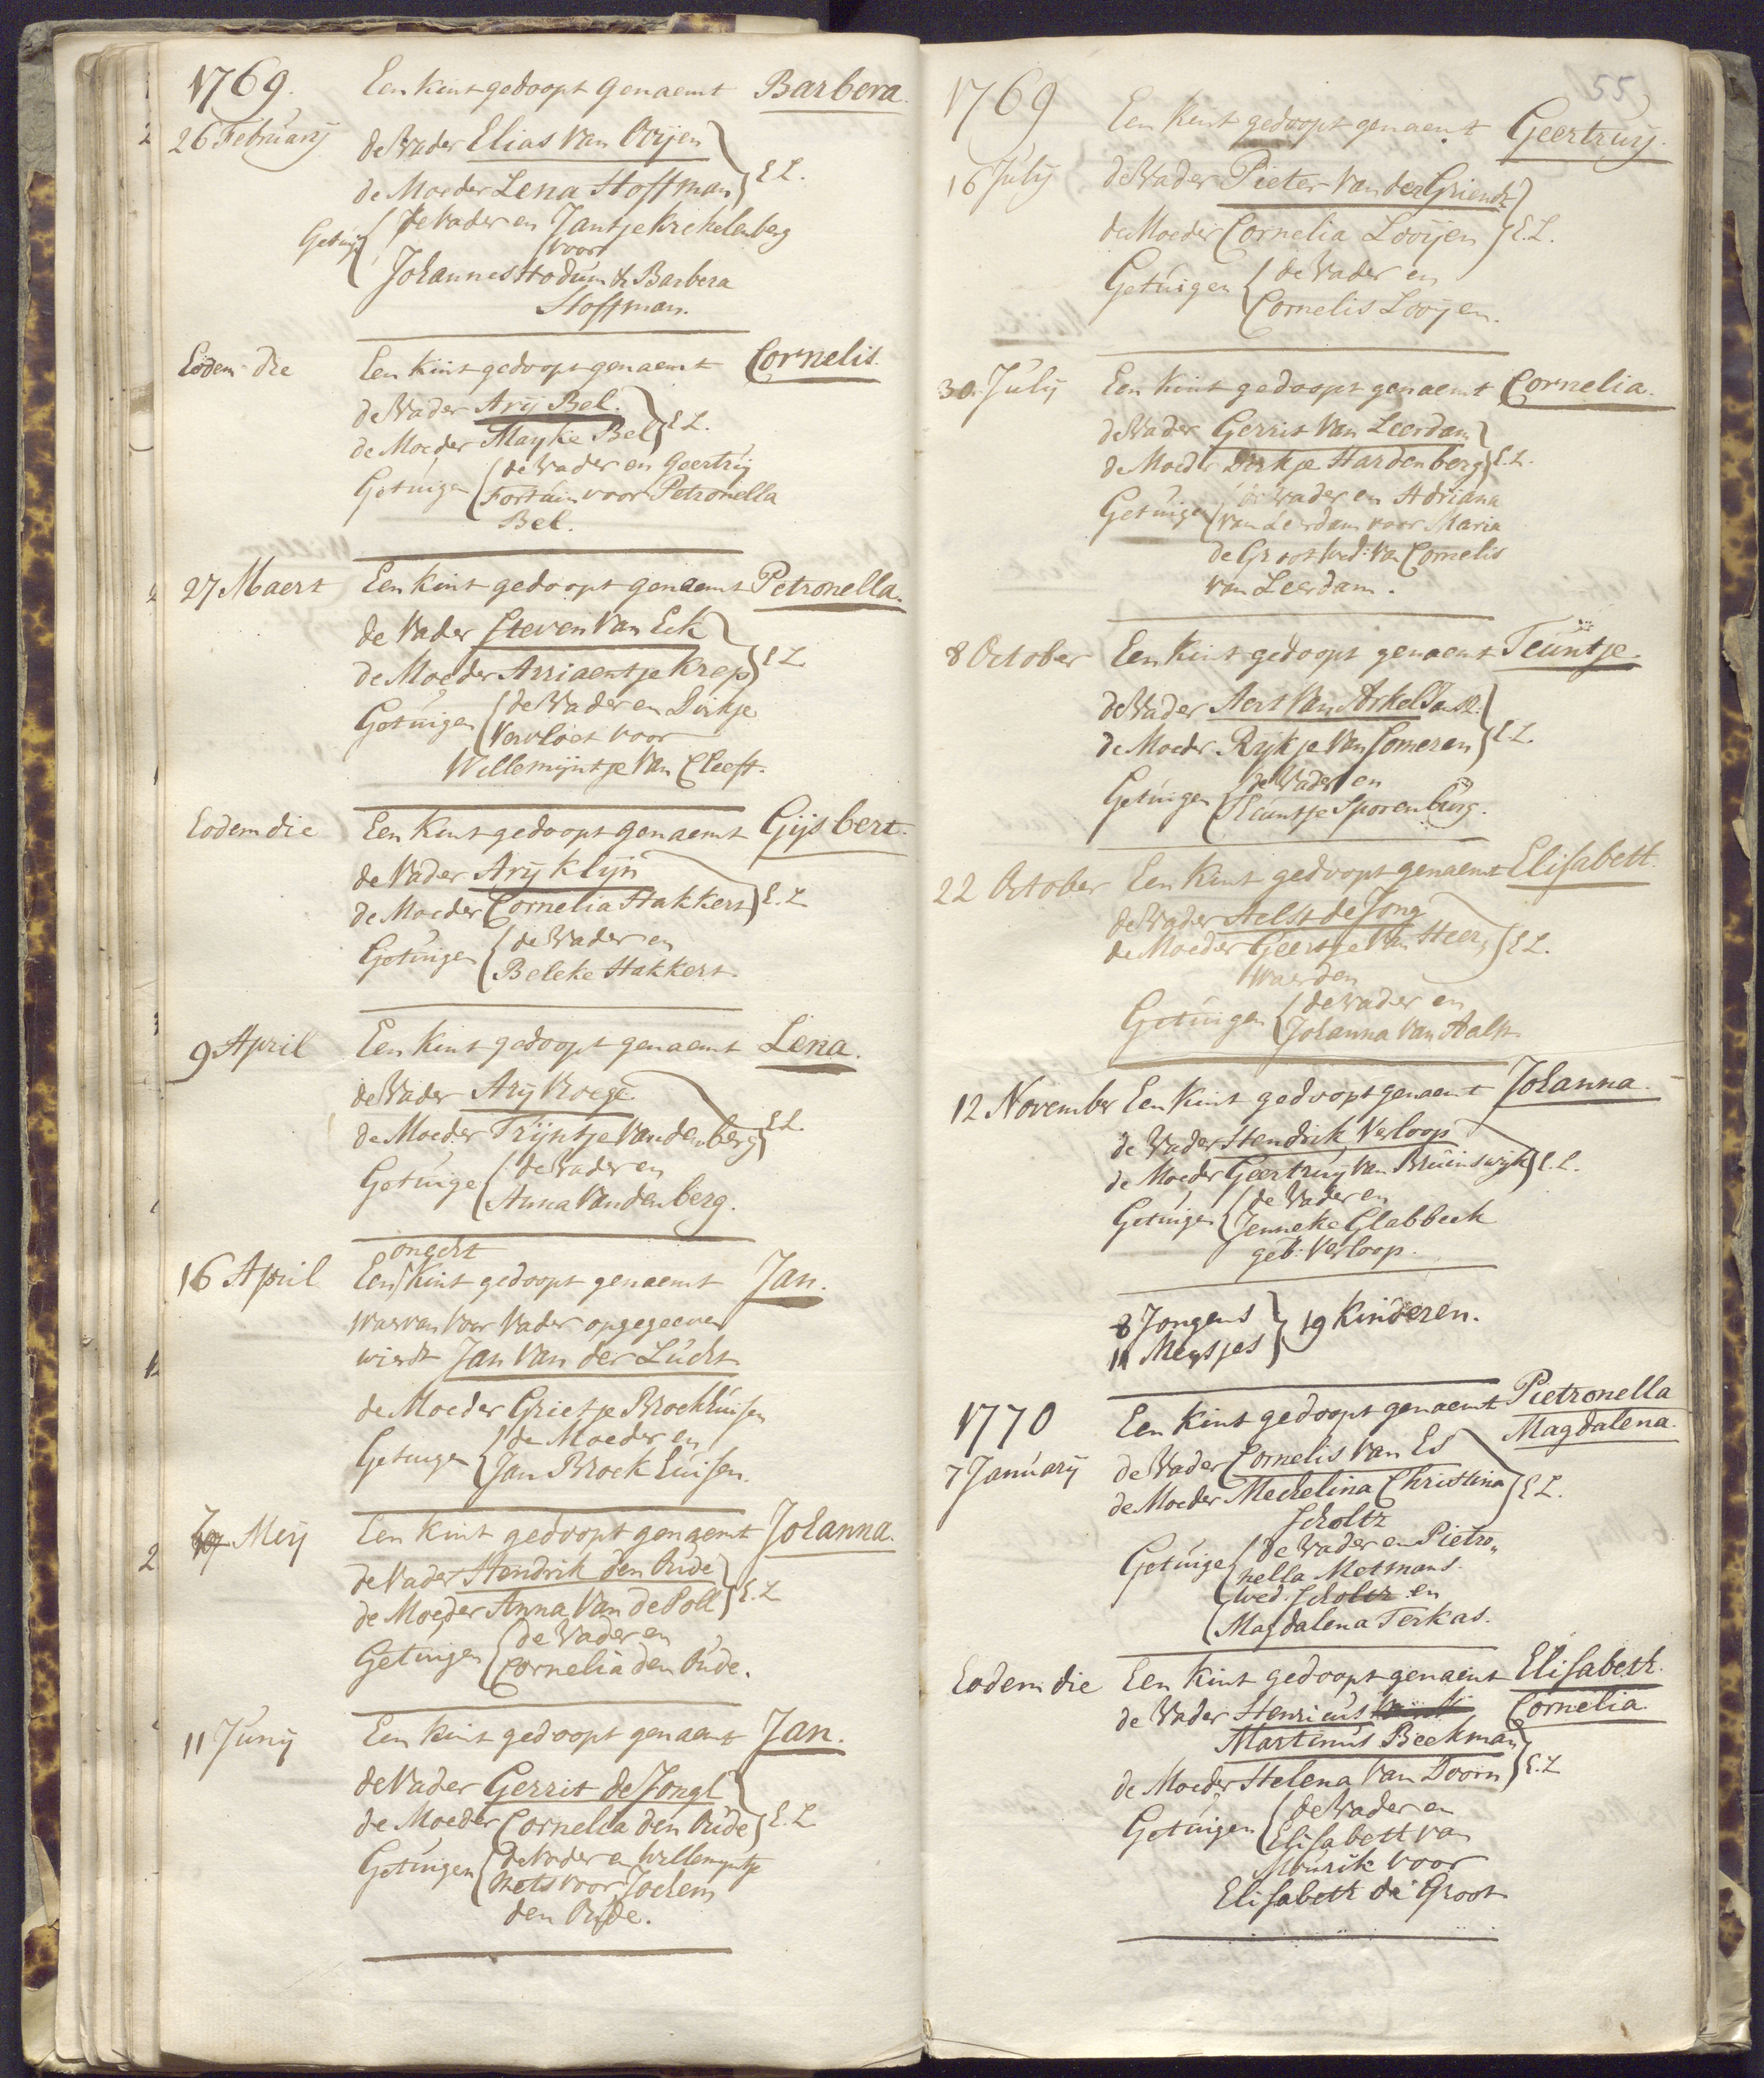 1769. Een kint gedoopt genaemt Barbera.
26 February de Vader Elias van Oijen
de Moeder Lena Hoffman } E L.
Getuig { de Vader en Jantje Krekelenberg
voor
Johannes Hodum & Barbera
Hoffman.
Eodem die Een kint gedoopt genaemt Cornelis.
de Vader Arij Bel.
de Moeder Mayke Bel } E L.
Getuigen { de Vader en Geertrij
Fortuin voor Petronella
Bel.
27 Maert Een kint gedoopt genaemt Petronella.
de Vader Steven van Eck
de Moeder Arriaentje Krep } E L
Getuigen { de Vader en Dirkje
Vervloet voor
Willemijntje van Cleeft.
Eodem die Een kint gedoopt genaemt Gijsbert.
de Vader Arij Klijn
de Moeder Cornelia Hakkert } E. L
Getuigen { de Vader en
Beleke Hakkert.
9 April Een kint gedoopt genaemt Lena.
de Vader Arij Kroege
de Moeder Trijntje van den berg } E L.
Getuige { de Vader en
Anna van den berg.
ongeht
16 April Een kint gedoopt genaemt Jan.
waervan voor Vader opgegeeven
wierdt Jan van der Lucht
de Moeder Grietje Brockhuisen
Getuigen { de Moeder en
Jan Brockhuisen.
7 Meij Een kint gedoopt genaemt Johanna.
de Vader Hendrik den Oude
de Moeder Anna van de Poll } E. L
Getuigen { de Vader en
Cornelia den Oude.
11 Junij Een kint gedoopt genaemt Jan.
de Vader Gerrit de Jongh
de Moeder Cornelia den Oude } E. L
Getuigen { de Vader en Willemyntje
Kets voor Jochem
den Oude.
55
1769
Een kint gedoopt genaemt Geertruy.
16 Julij de Vader Pieter van der Griendt
de Moeder Cornelia Looijen } E. L.
Getuigen { de Vader en
Cornelis Looijen.
30 Julij Een kint gedoopt genaemt Cornelia.
de Vader Gerrit van Leerdam
de Moeder Dirkje Hardenberg } E. L.
Getuigen { de Vader en Adriana
van Leerdam voor Maria
de Groot wed: van Cornelis
van Leerdam.
8 October Een kint gedoopt genaemt Teuntje.
de Vader Aert van Arkel Jansz.
de Moeder Rijkje van Someren } E L
Getuigen { de Vader en
Teuntje Sporenburg.
22 October Een kint gedoopt genaemt Elisabeth.
de Vader Aelst de Jong
de Moeder Geertje van Heer, } E L.
waerden
Getuigen { de Vader en
Johanna van Aalst
12 November Een kint gedoopt genaemt Johanna.
de Vader Hendrik Verloop
de Moeder Geertruij van Bruinswijk } E. L.
Getuigen { de Vader en
Jenneke Glabbeek
geb: Verloop.
8 Jongens
11 Meysjes } 19 Kinderen.
1770 Een kint gedoopt genaemt Pietronella
Magdalena.
7 January de Vader Cornelis van Es
de Moeder Mechelina Christina } E L.
Scholtz
Getuige { de Vader en Pietro„
nella Metmans.
wed. Scholtz en
Magdalena Terkas.
Eodem die Een kint gedoopt genaemt Elisabeth.
de Vader Henricus Cornelia.
Martinus Beekman
de Moeder Helena van Doorn } E. L
Getuigen { de Vader en
Elisabeth van
Mourik voor
Elisabeth de Groot